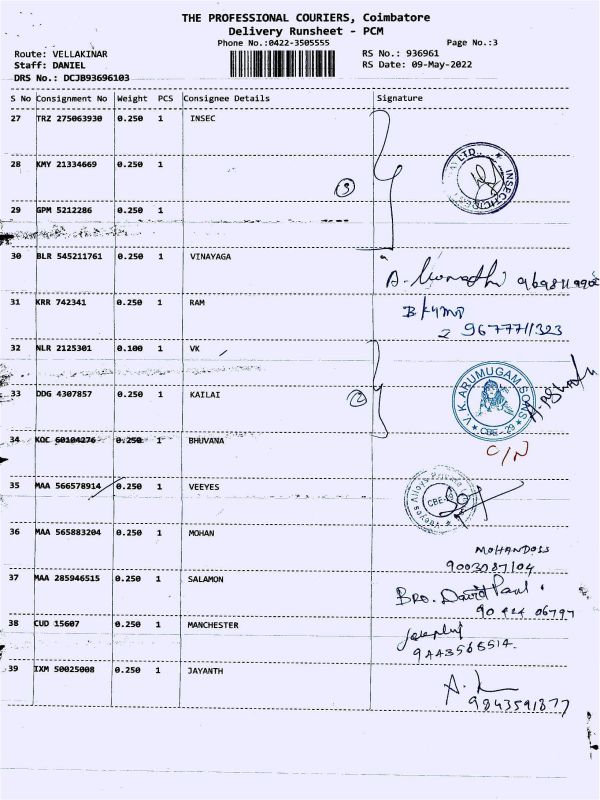 THE PROFESSIONAL COURIERS, Coimbatore
Delivery Runsheet - PCM
Phone No.:0422-3505555
Page No.:3
Route: VELLAKINAR
RS No.: 936961
Staff: DANIEL
RS Date: 09-May-2022
DRS No.: DCJB93696103
S No Consignment No Weight PCS Consignee Details Signature
27 TRZ 275063930 0.250 1 INSEC
28 KMY 21334669 0.250 1
3
29 GPM 5212286 0.250 1
30 BLR 545211761 0.250 1 VINAYAGA
31 KRR 742341 0.250 1 RAM
9677711323
32 NLR 2125301 0.100 1 VK
33 DDG 4307857 0.250 1 KAILAI
2
V.K. ARUMUGAM SONS
CBE-29
34 KOC 60104276 0.250 1 BHUVANA
C/N
35 MAA 566578914 0.250 1 VEEYES
Veeyes Alloys Private
36 MAA 565883204 0.250 1 MOHAN
MOHANDOSS
9003087104
37 MAA 285946515 0.250 1 SALAMON
Bro. David Paul
90 424 06797
38 CUD 15607 0.250 1 MANCHESTER
9443568514.
39 IXM 50025008 0.250 1 JAYANTH
9843591877